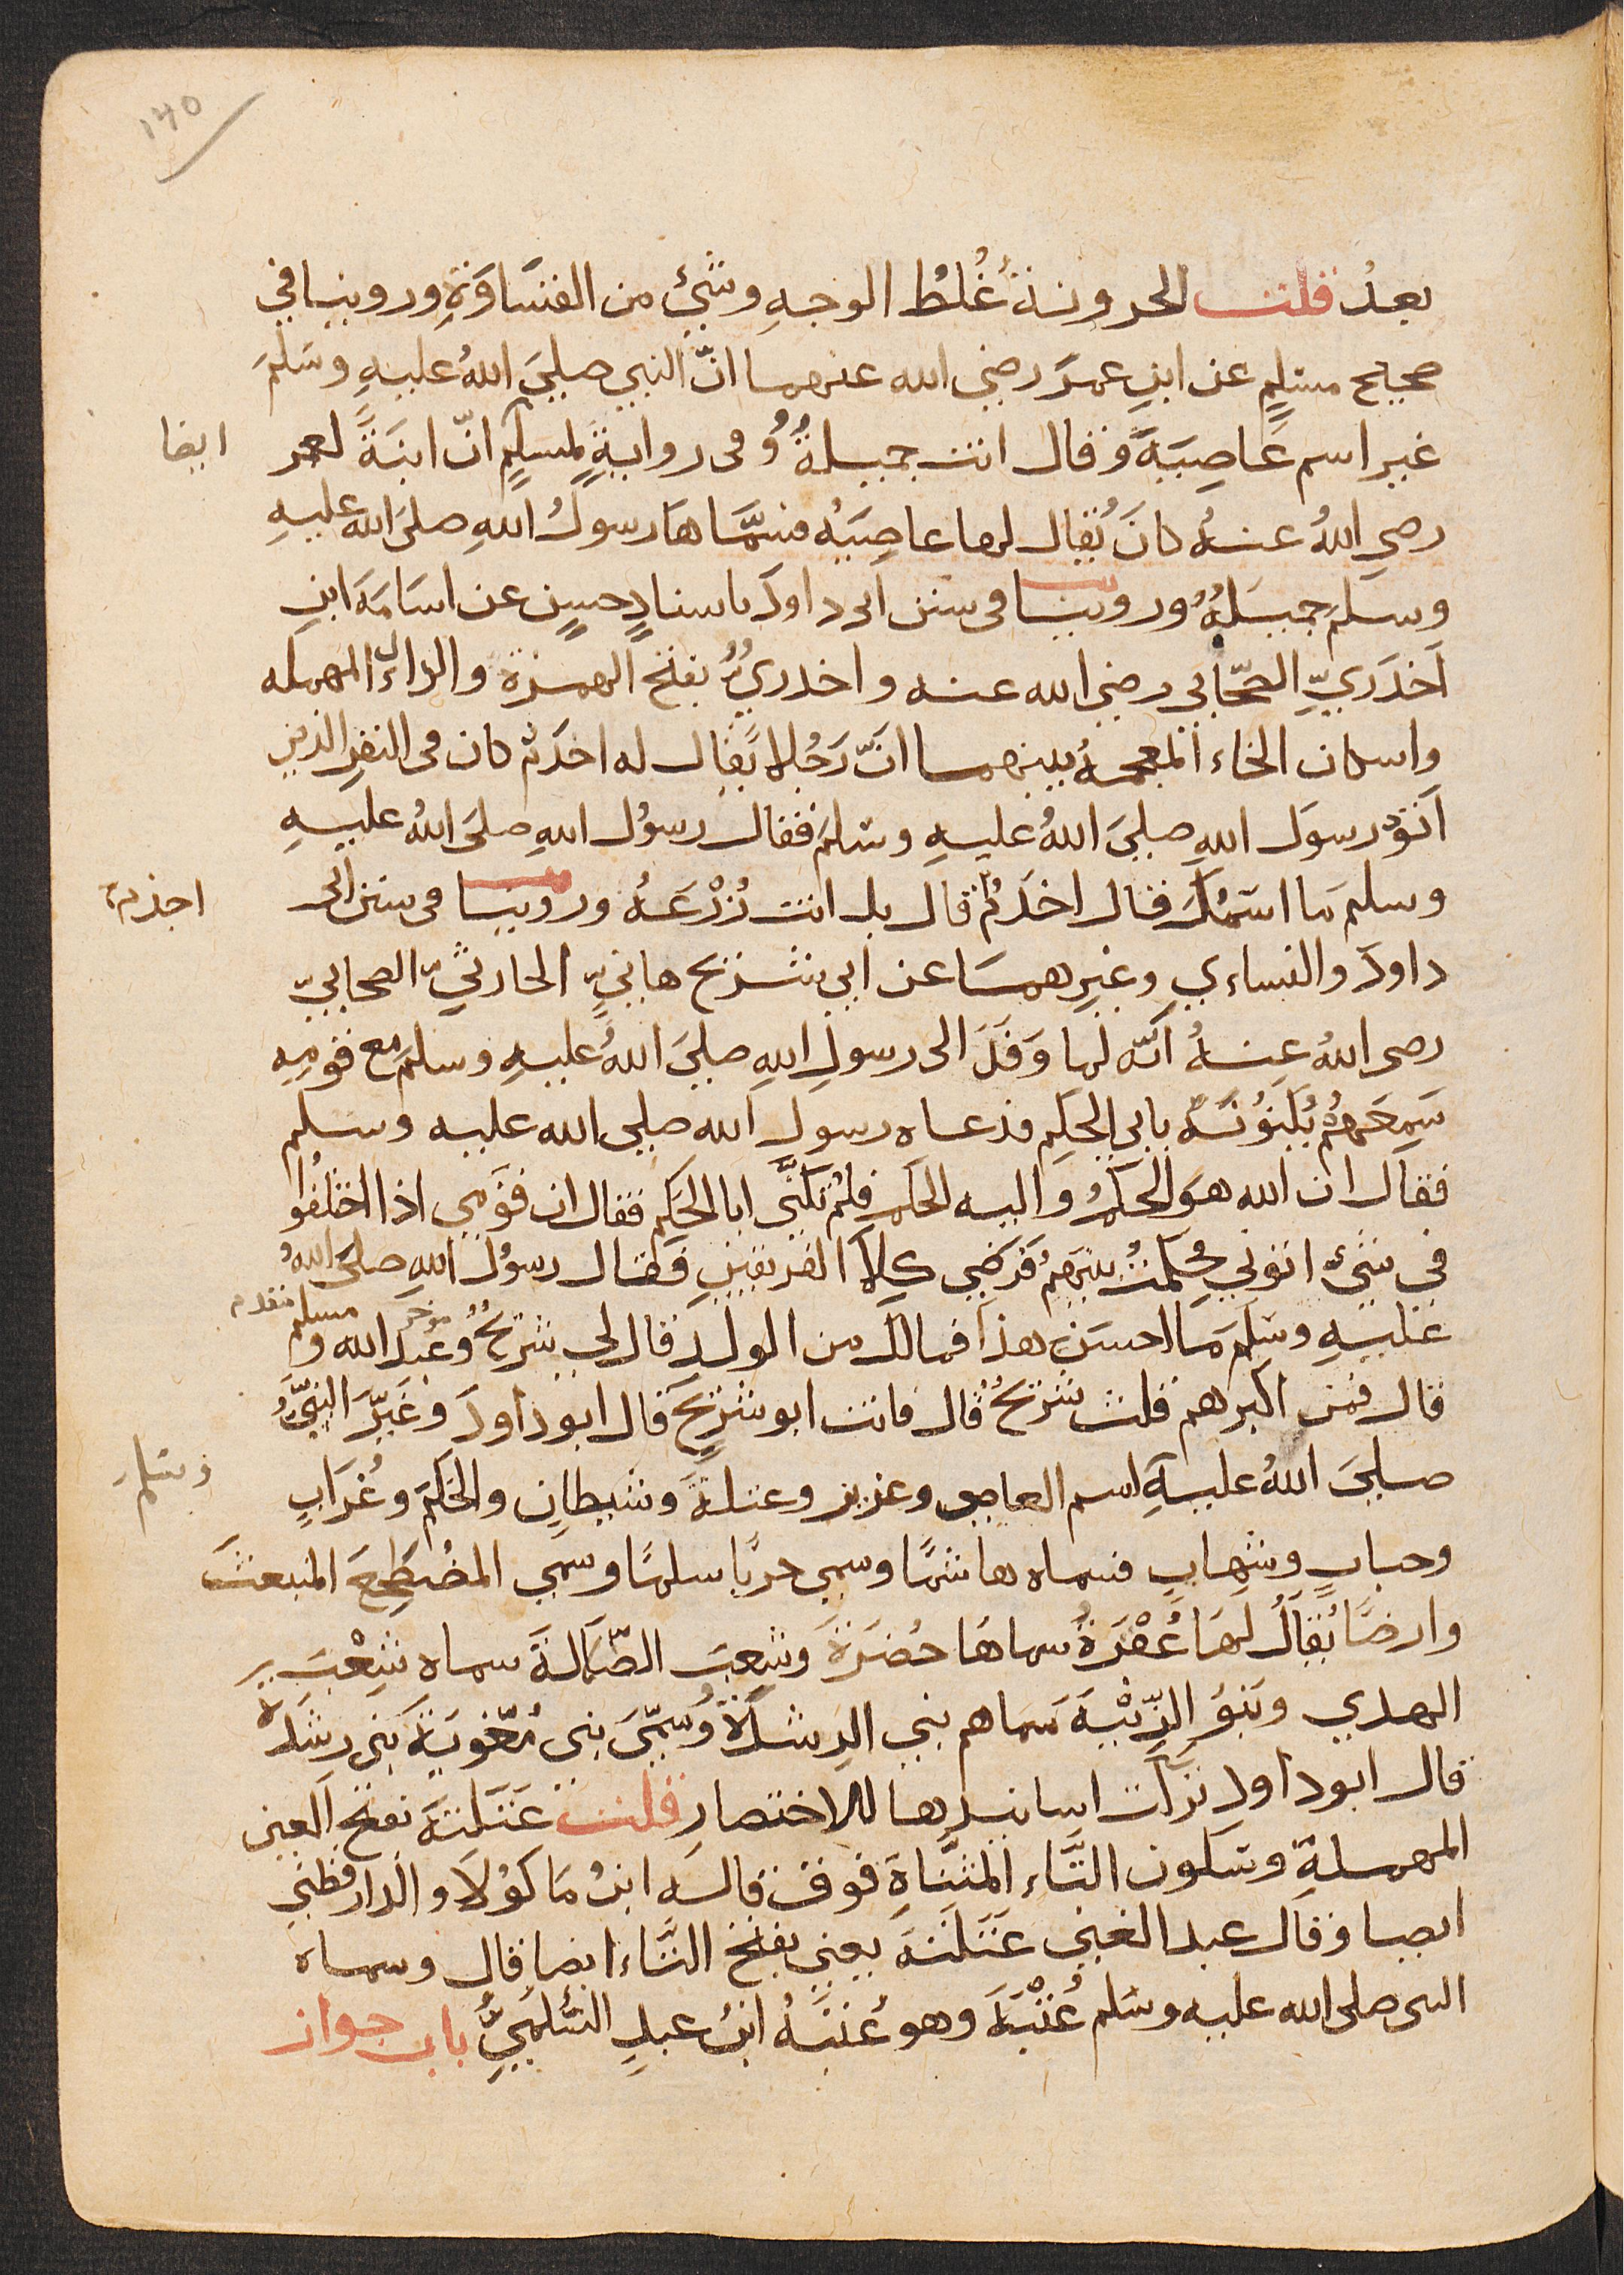 ١٤٥
بعدُ قلت الحزونة غُلظُ الوجهِ وشيئ من القسَاوَةِ وروينا في
صحيح مسلمٍ عن ابنِ عمرَ رضي الله عنهما انّ النبي صلىَ اللهُ عليهِ وسَلمَ
غير اسم عَاصِيَةَ وَقال انت جميلةُ وُ في روايةٍ لمسلمٍ انّ ابنَةً لعمر ايضا
رضي اللهُ عنهُ كانَ يُقال لها عاصِيَهُ فسمَّاهَا رسولُ اللهِ صلىَ اللهُ عليهِ
وسلمَ جميَلهُ وروينا في سنن ابى داودَ باسنادٍ حسنٍ عن اسَامَةَ ابنِ
اَخدَريِّ الصحَّابى رضي الله عنه واخدريُّ بفتح الهمزة والدال المهمله
واسكان الخاء المعجمهُ بينهما انَّ رَجُلا يُقال له اخدَم كان في النفرِ الذين
اَتَوْ رسوَل اللهِ صلىَ اللهُ عليهِ وسَلمَ فقال رسوُل اللهِ صلىَ اللهُ عليهِ
وسلمَ ما اسَمُكَ قال اخدَمُ قال بل انت زُرْعَهُ وروينا في سنن ابى اجذم
داودَ والنساءي وغيرِهمَا عن ابي شريح هانيٍّ الحارثيِّ الصحابيّ
رضى اللهُ عنهُ انّه لما وَفَدَ الى رسولِ اللهِ صلىَ اللهُ عليهِ وسلمَ مع قومِهِ
سَمِعَهمُ يُكَنوُنَهُ بابي الحكِم فدعاه رسول الله صلى الله عليه وسلم
فقال ان الله هوَ الحكمُ واليه الحكمُ فلمُ تكنَّى ابا الحَكِم فقال ان قوَمي اذا اختلفُوا
في شيئ اتوني فحكمتُ بينهمُ فَرضَي كِلاَ الفريقينِ فَقال رسوُل اللهِ صلىَ اللهُ
عليهِ وسَلمَ مَا احسَن هذا فمالك من الولدِ قال لى شريحُ وُعبدُ الله و مسلم مؤخر مقدم
قال فمن اكبرهم قلت شريحُ قال فانت ابو شريَح قال ابو داودَ وغَيرَّ النبيُّ
صلىَ اللهُ عليهِ اسم العاصى وعزيز وعتلة وشيطانٍ والحَكمَ وغُرَابٍ وسلم
وحبابٍ وشهابٍ فسماه هاشمًا وسمي حربًا سلمًا وسمي المضْطَجِعَ المنبعثَ
وارضًا يُقالُ لهَا عُفْرَةُ سماهَا خضرَةَ وَشِعبَ الضّلاَلةَ سماه شِعْبَ
الهدي وبَنوُ الزِّنْيَةَ سَماهم بني الرشدَةُ وُسَمّىَ بنى مُغوِيَة بَنى رِشدَه
قال ابو داود تركت اسانيدها للاختصارِ قلت عَتَلةَ بفتح العين
المهملةِ وسَكون التَّاء المثنَّاةِ فوق قاله ابنُ مَاكوُلَا والدار قطني
ايضا وقال عبد الغني عَتَلةَ يعني بفتح التَّاء ايضا قال وسماه
النبى صلى الله عليه وسَلم عُتْبَةَ وهو عُتبَةُ ابنُ عبدٍ السُّلميُّ باب جواز